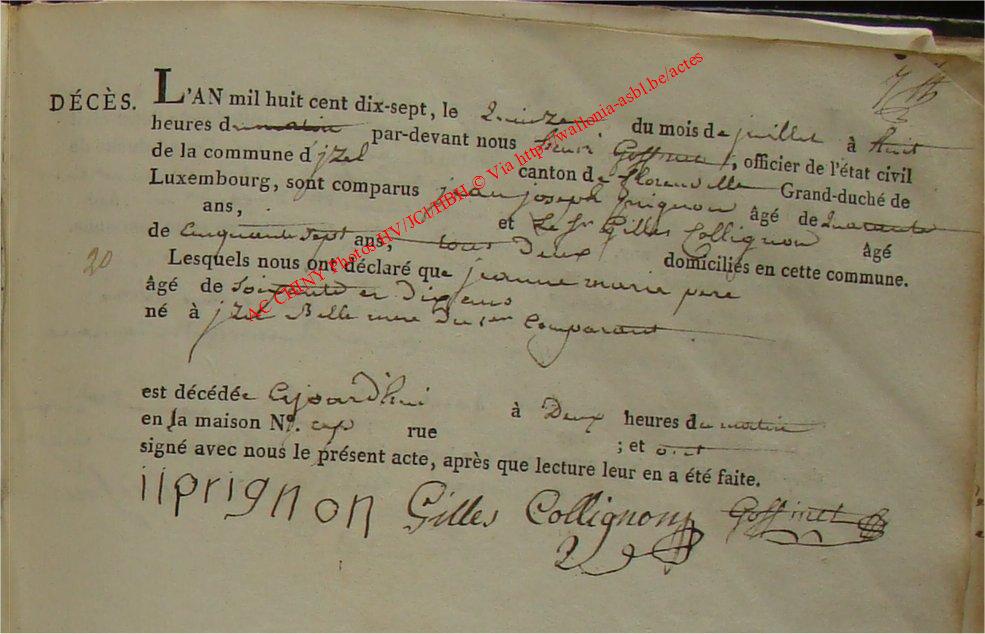 DÉCÈS. L'AN mil huit cent dix-sept, le Quinze du mois de juillet à huit
heures du matin par-devant nous henri Goffinet, officier de l'état civil
de la commune d'jzel canton de florenville Grand-duché de
Luxembourg, sont comparus jean joseph prignon âgé de quarante
ans, et Le Sr Gilles Collignon âgé
de Cinquante Sept ans, tous Deux domiciliés en cette commune.
20
Lesquels nous ont déclaré que jeanne marie
âgé de Soixante et Dix ans
né à jzel Belle mere Du 1er Comparant
est décédée à Deux heures du matin
en la maison No. rue ; et ont
signé avec nous le présent acte, après que lecture leur en a été faite.
iiprignon Gilles Collignon Goffinet
AC CHINY Photos HV/JCl/HBH © Via http://wallonia-asbl.be/actes